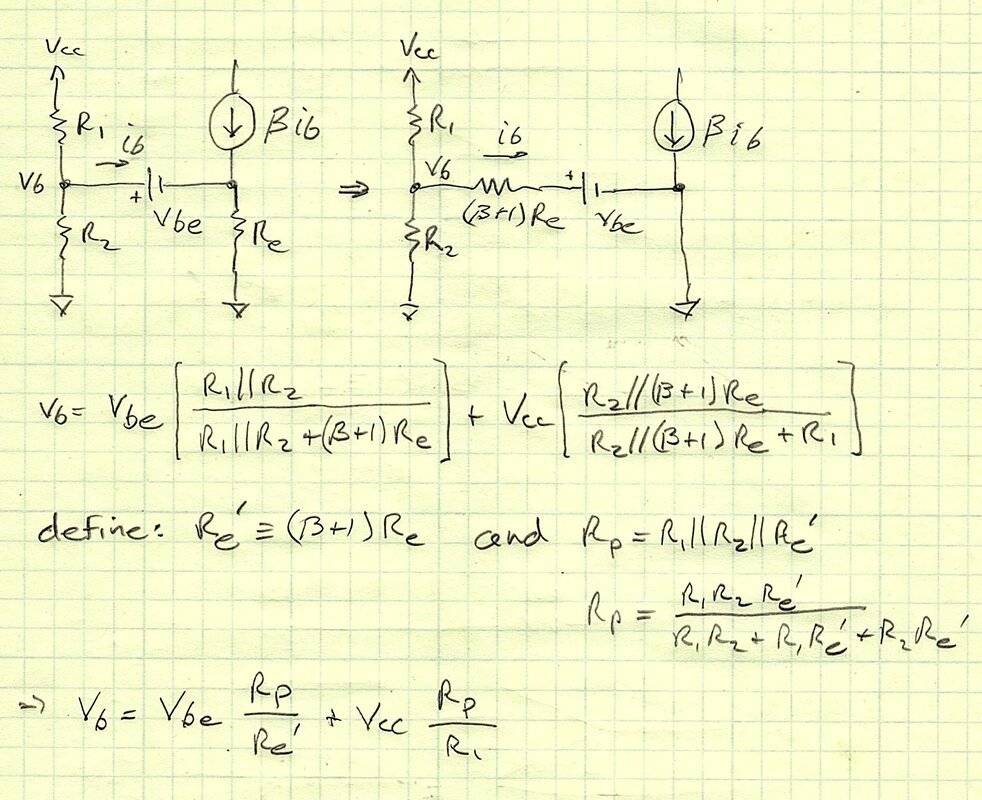 Vcc
R1
ib
βib
Vb
+
Vbe
R2
Re
⇒
Vcc
R1
ib
βib
Vb
+
(β+1)Re
Vbe
R2
Vb = Vbe [ R1//R2 / R1//R2 + (β+1)Re ] + Vcc [ R2//(β+1)Re / R2//(β+1)Re + R1 ]
define: Re' ≡ (β+1)Re and Rp = R1//R2//Re'
Rp = R1R2Re' / R1R2 + R1Re' + R2Re'
⇒ Vb = Vbe Rp/Re' + Vcc Rp/R1